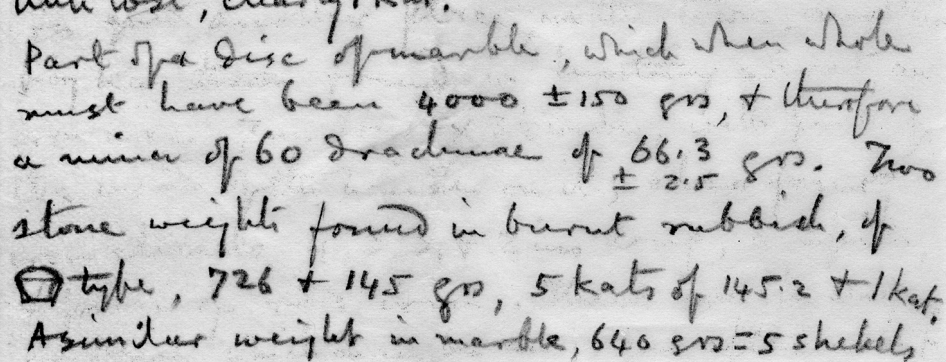 Part of a disc of marble, which when whole
must have been 4000 ± 150 grs, + therefore
a mina of 60 drachmae of 66.3 grs. Two
± 2.5
stone weights found in burnt rubbish, of
type, 726 + 145 grs, 5 kats of 145.2 + 1 kat.
A similar weight in marble, 640 grs = 5 shekels